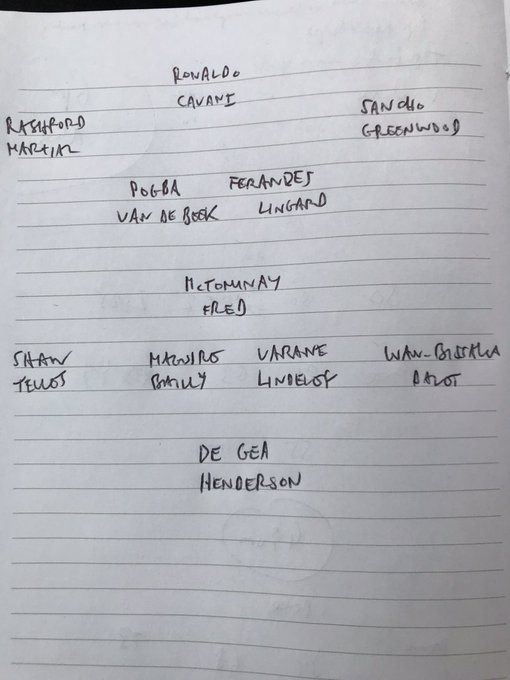 RONALDO
CAVANI
SANCHO
RASHFORD GREENWOOD
MARTIAL
POGBA FERANDES
VAN DE BEEK LINGARD
McTOMINAY
FRED
SHAW MAGUIRE VARANE WAN-BISSAKA
TELLES BAILLY LINDELOF DALOT
DE GEA
HENDERSON